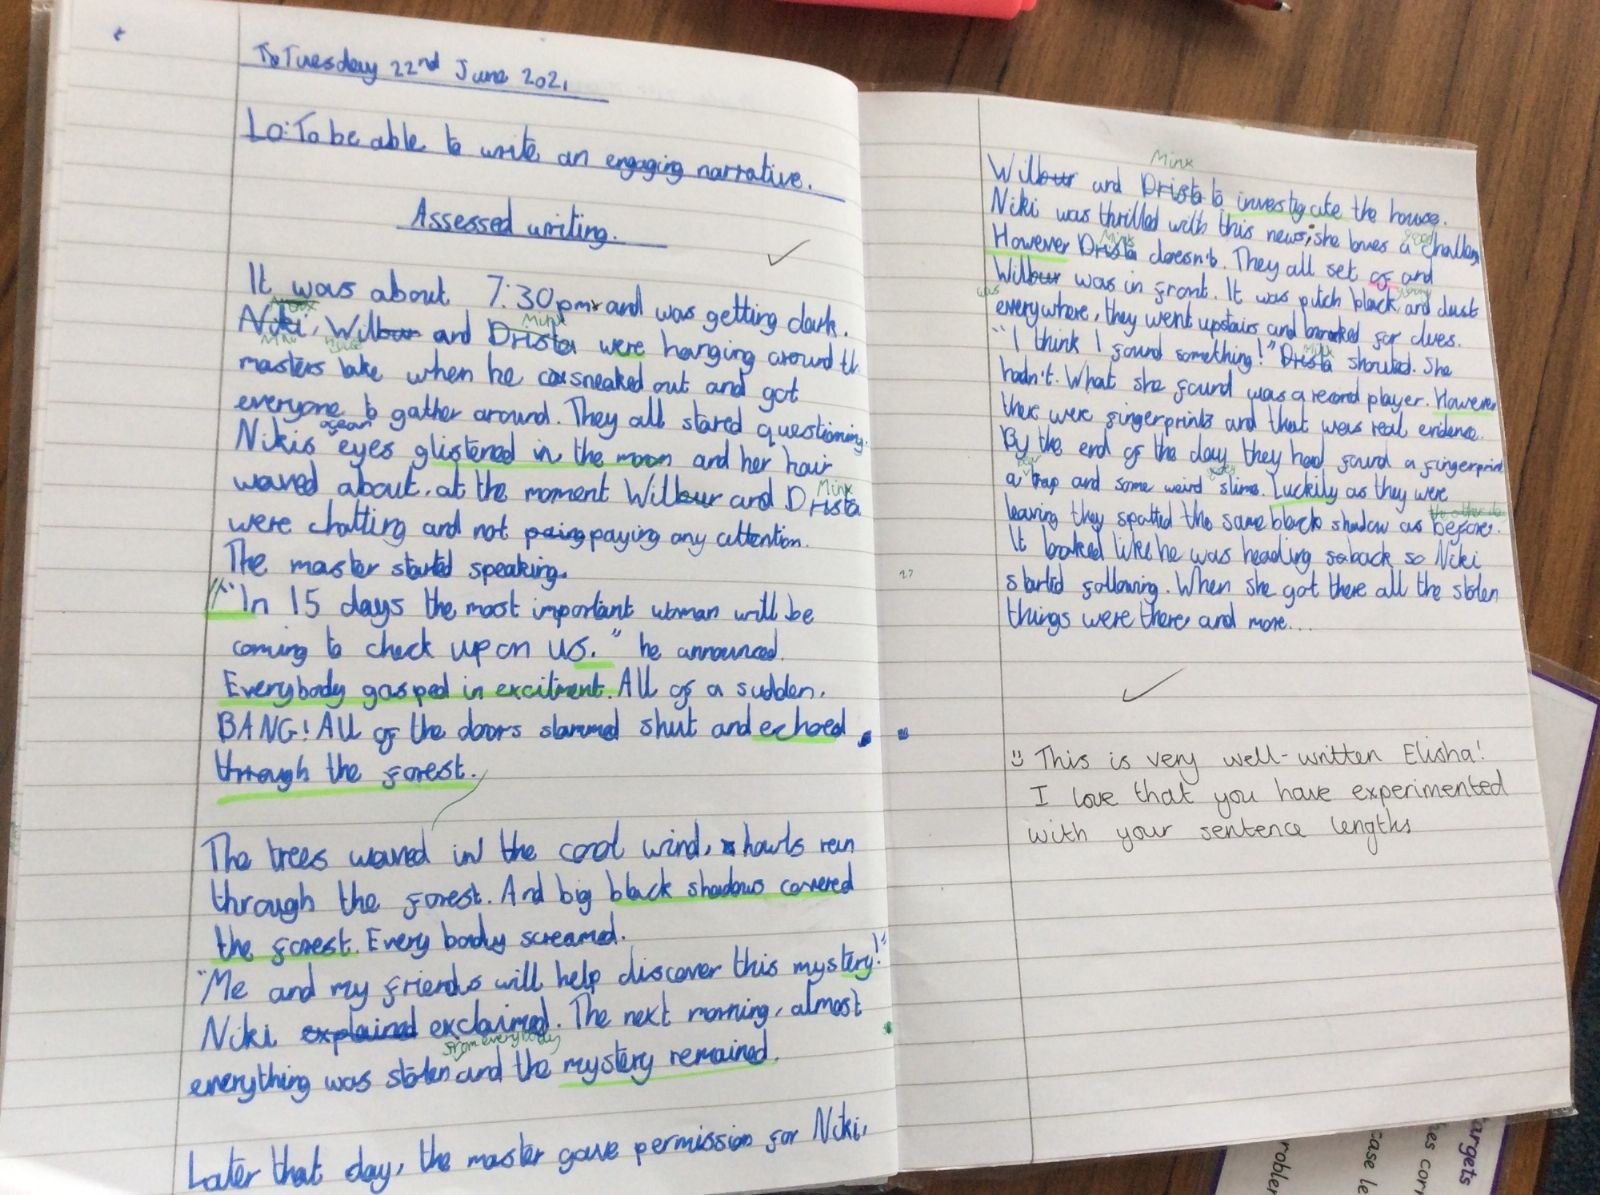 Tuesday 22nd June 2021
Lo: To be able to write an engaging narrative.
Assessed writing.
It was about 7:30pm and was getting dark.
Niki, Wilbur and Drista were hanging around th
Mink
masters lake when he sneaked out and got
everyone to gather around. They all stared questioning.
ocean
Nikis eyes glistened in the moon and her hair
waved about, at the moment Wilbur and Drista
Mink
were chatting and not paying any attention.
The master started speaking.
"In 15 days the most important woman will be
coming to check up on us." he announced.
Everybody gasped in excitment. All of a sudden,
BANG! All of the doors slammed shut and echoed
through the forest.
The trees waved in the cool wind, howls ran
through the forest. And big black shadows covered
the forest. Every body screamed.
"Me and my friends will help discover this mystery!"
Niki explained exclaimed. The next morning, almost
from everybody
everything was stolen and the mystery remained.
Later that day, the master gave permission for Niki,
Mink
Wilbur and Drista to investigate the house.
Niki was thrilled with this news; she loves a challen
good
However Drista doesn't. They all set of and
Mink
Wilbur was in front. It was pitch black and dust
was
everywhere, they went upstairs and looked for clues.
"I think I found something!" Drista shouted. She
Mink
hadn't. What she found was a record player. However
there were fingerprints and that was real evidence.
By the end of the day they had found a fingerprint
a trap and some weird slime. Luckily as they were
leaving they spotted the same black shadow as before.
It looked like he was heading back so Niki
started following. When she got there all the stolen
things were there and more...
This is very well-written Elisha!
I love that you have experimented
with your sentence lengths
argets